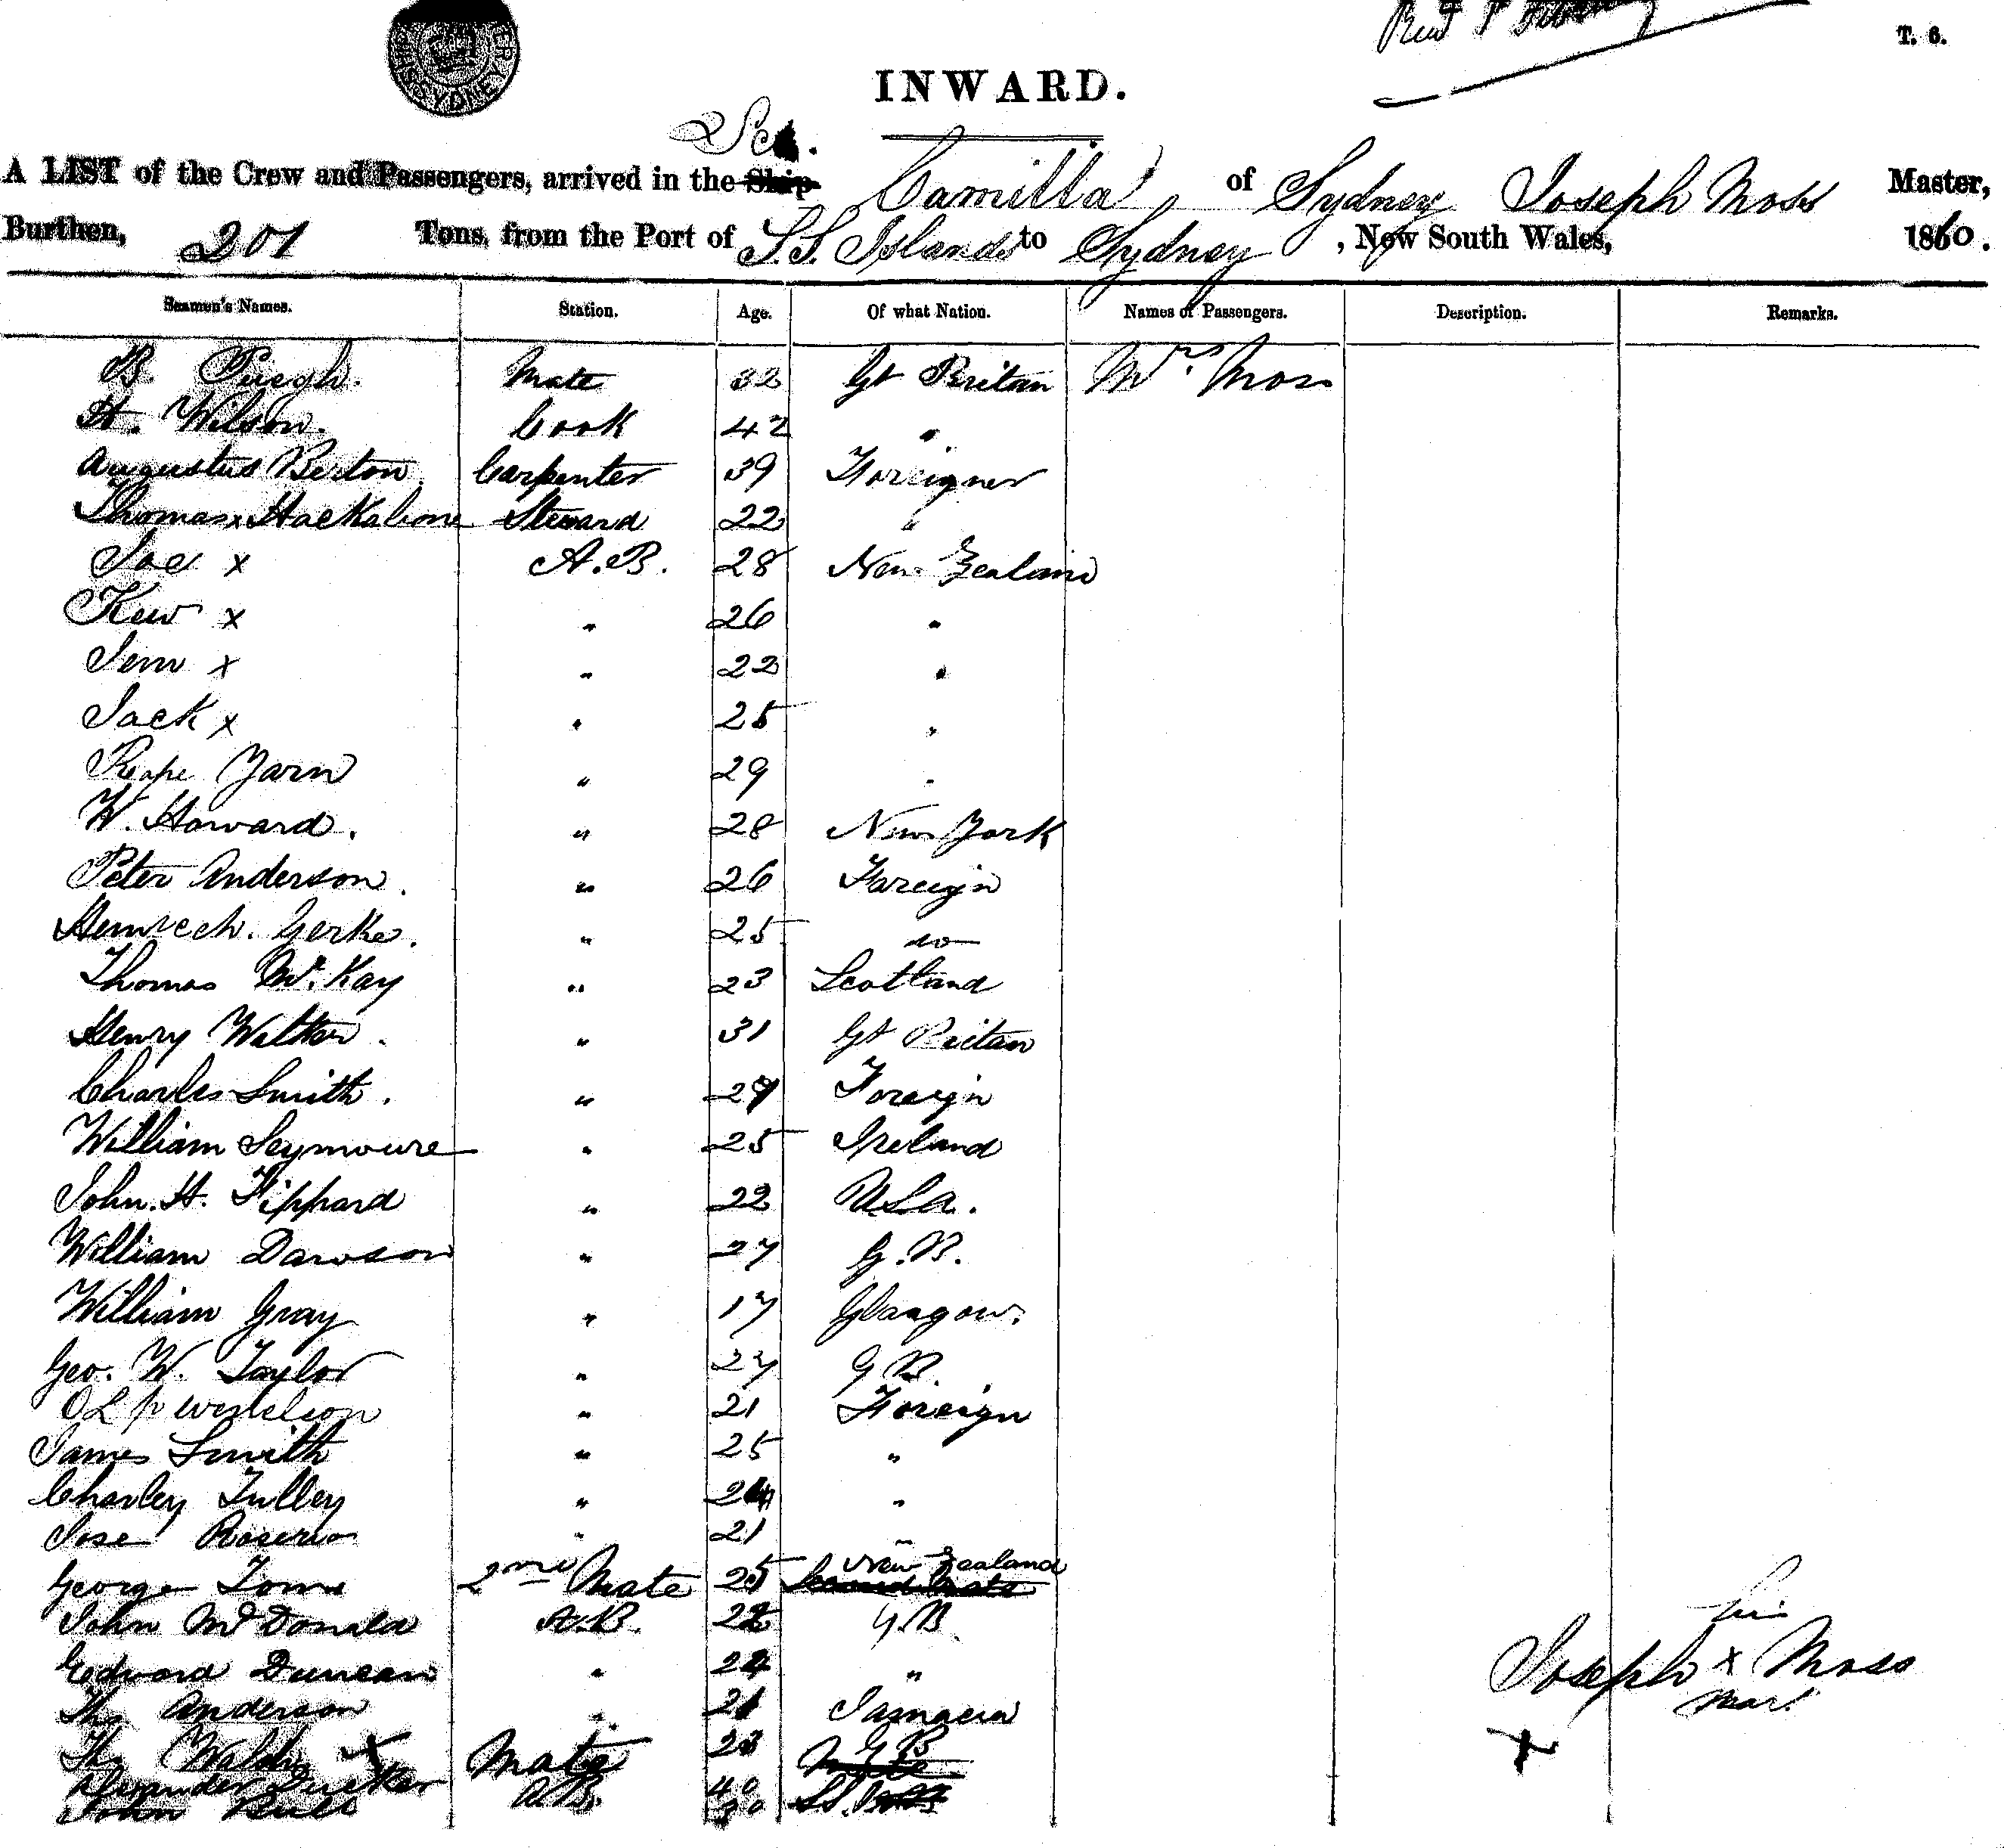 T. 6.
SYDNEY
INWARD.
Sch.
A LIST of the Crew and Passengers, arrived in the Ship Camilla of Sydney Joseph Moss Master,
Burthen, 201 Tons, from the Port of S.S. Islands to Sydney, New South Wales, 1860.
Seamen's Names. Station. Age. Of what Nation. Names of Passengers. Description. Remarks.
B. Puegh. Mate 32 Gt Britan Mrs. Moss
H. Wilson. Cook 42 "
Augustus Berton Carpenter 39 Foreigner
Thomas x Hackalione Steward 22 "
Joe x A.B. 28 New Zealand
Kew x " 26 "
Jem x " 22 "
Jack x " 25 "
Rope Yarn " 29 "
W. Howard. " 28 New York
Peter Anderson. " 26 Foreign
Heinrech. Gerke. " 25 do
Thomas Mc.Kay " 23 Scotland
Henry Walker. " 31 Gt Britan
Charles Smith. " 29 Foreign
William Seymoure " 25 Ireland
John. H. Tippard " 22 U.S.A.
William Dawson " 27 G.B.
William Gray " 17 Glasgow.
Geo. W. Taylor " 27 G B.
" 21 Foreign
James Smith " 25 "
Charley Tulley " 24 "
Jose Roserio " 21 "
George Toms 2nd Mate 25 Second Mate New Zealand
John McDonald A.B. 22 G.B. his
Edward Duncan " 24 " Joseph x Moss
Ths Anderson " 21 Jamaica mark
Ths Welch x Mate 23 G B
Alexander Tucker A.B. 40
John Bull 30